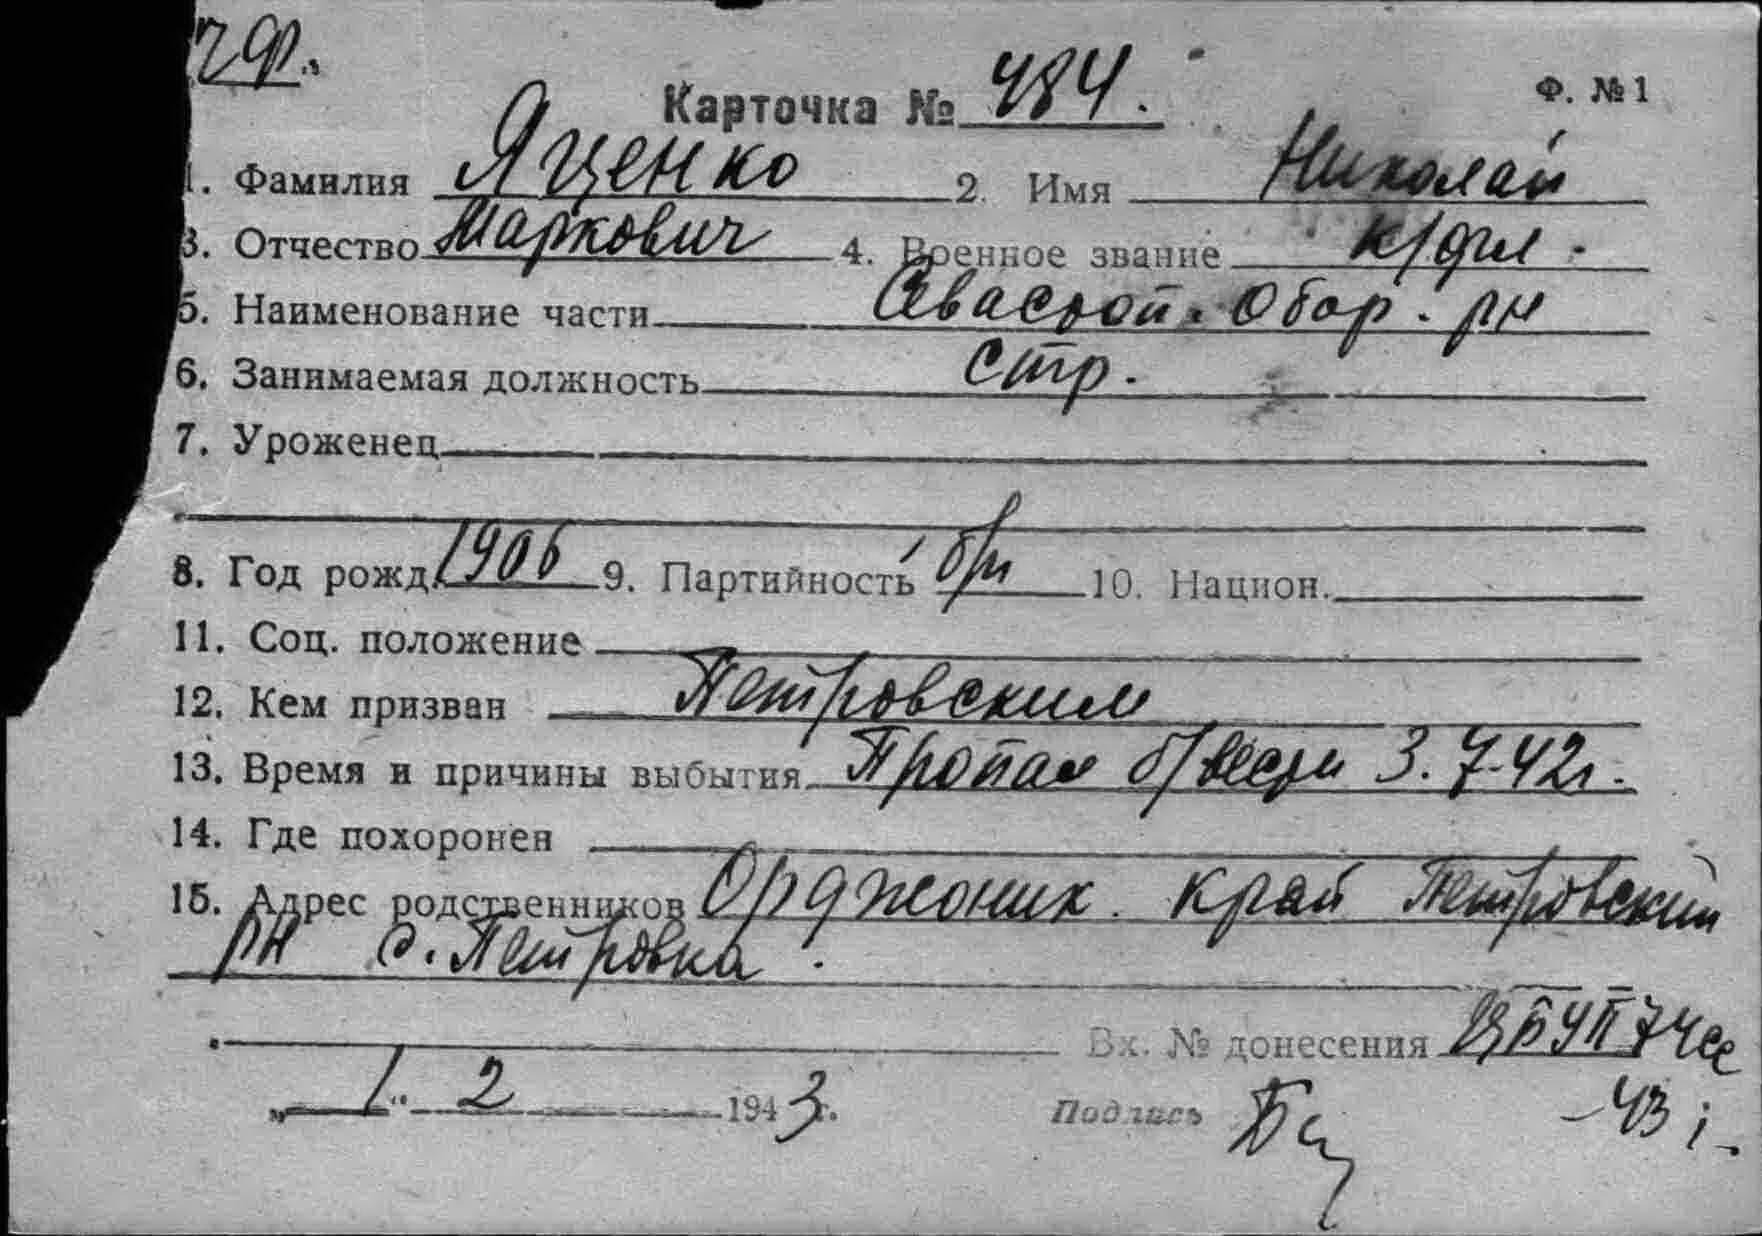 ЧФ.
Карточка № 484. Ф. № 1
1. Фамилия Яценко 2. Имя Николай
3. Отчество Маркович 4. Военное звание к/фл.
5. Наименование части Севастоп. Обор. рн
6. Занимаемая должность стр.
7. Уроженец
8. Год рожд. 1906 9. Партийность б/п 10. Национ.
11. Соц. положение
12. Кем призван Петровским
13. Время и причины выбытия Пропал б/вести 3.7.42г.
14. Где похоронен
15. Адрес родственников Орджоник. край Петровский
рн с. Петровка.
Вх. № донесения
„ 1 “ 2 1943 г. Подпись
-43 г.